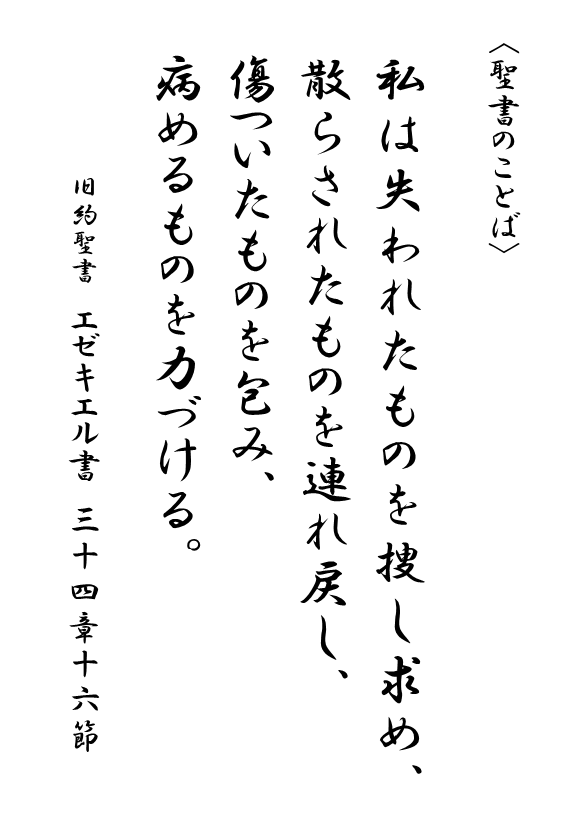 〈聖書のことば〉
私は失われたものを捜し求め、
散らされたものを連れ戻し、
傷ついたものを包み、
病めるものを力づける。
旧約聖書　エゼキエル書　三十四章十六節